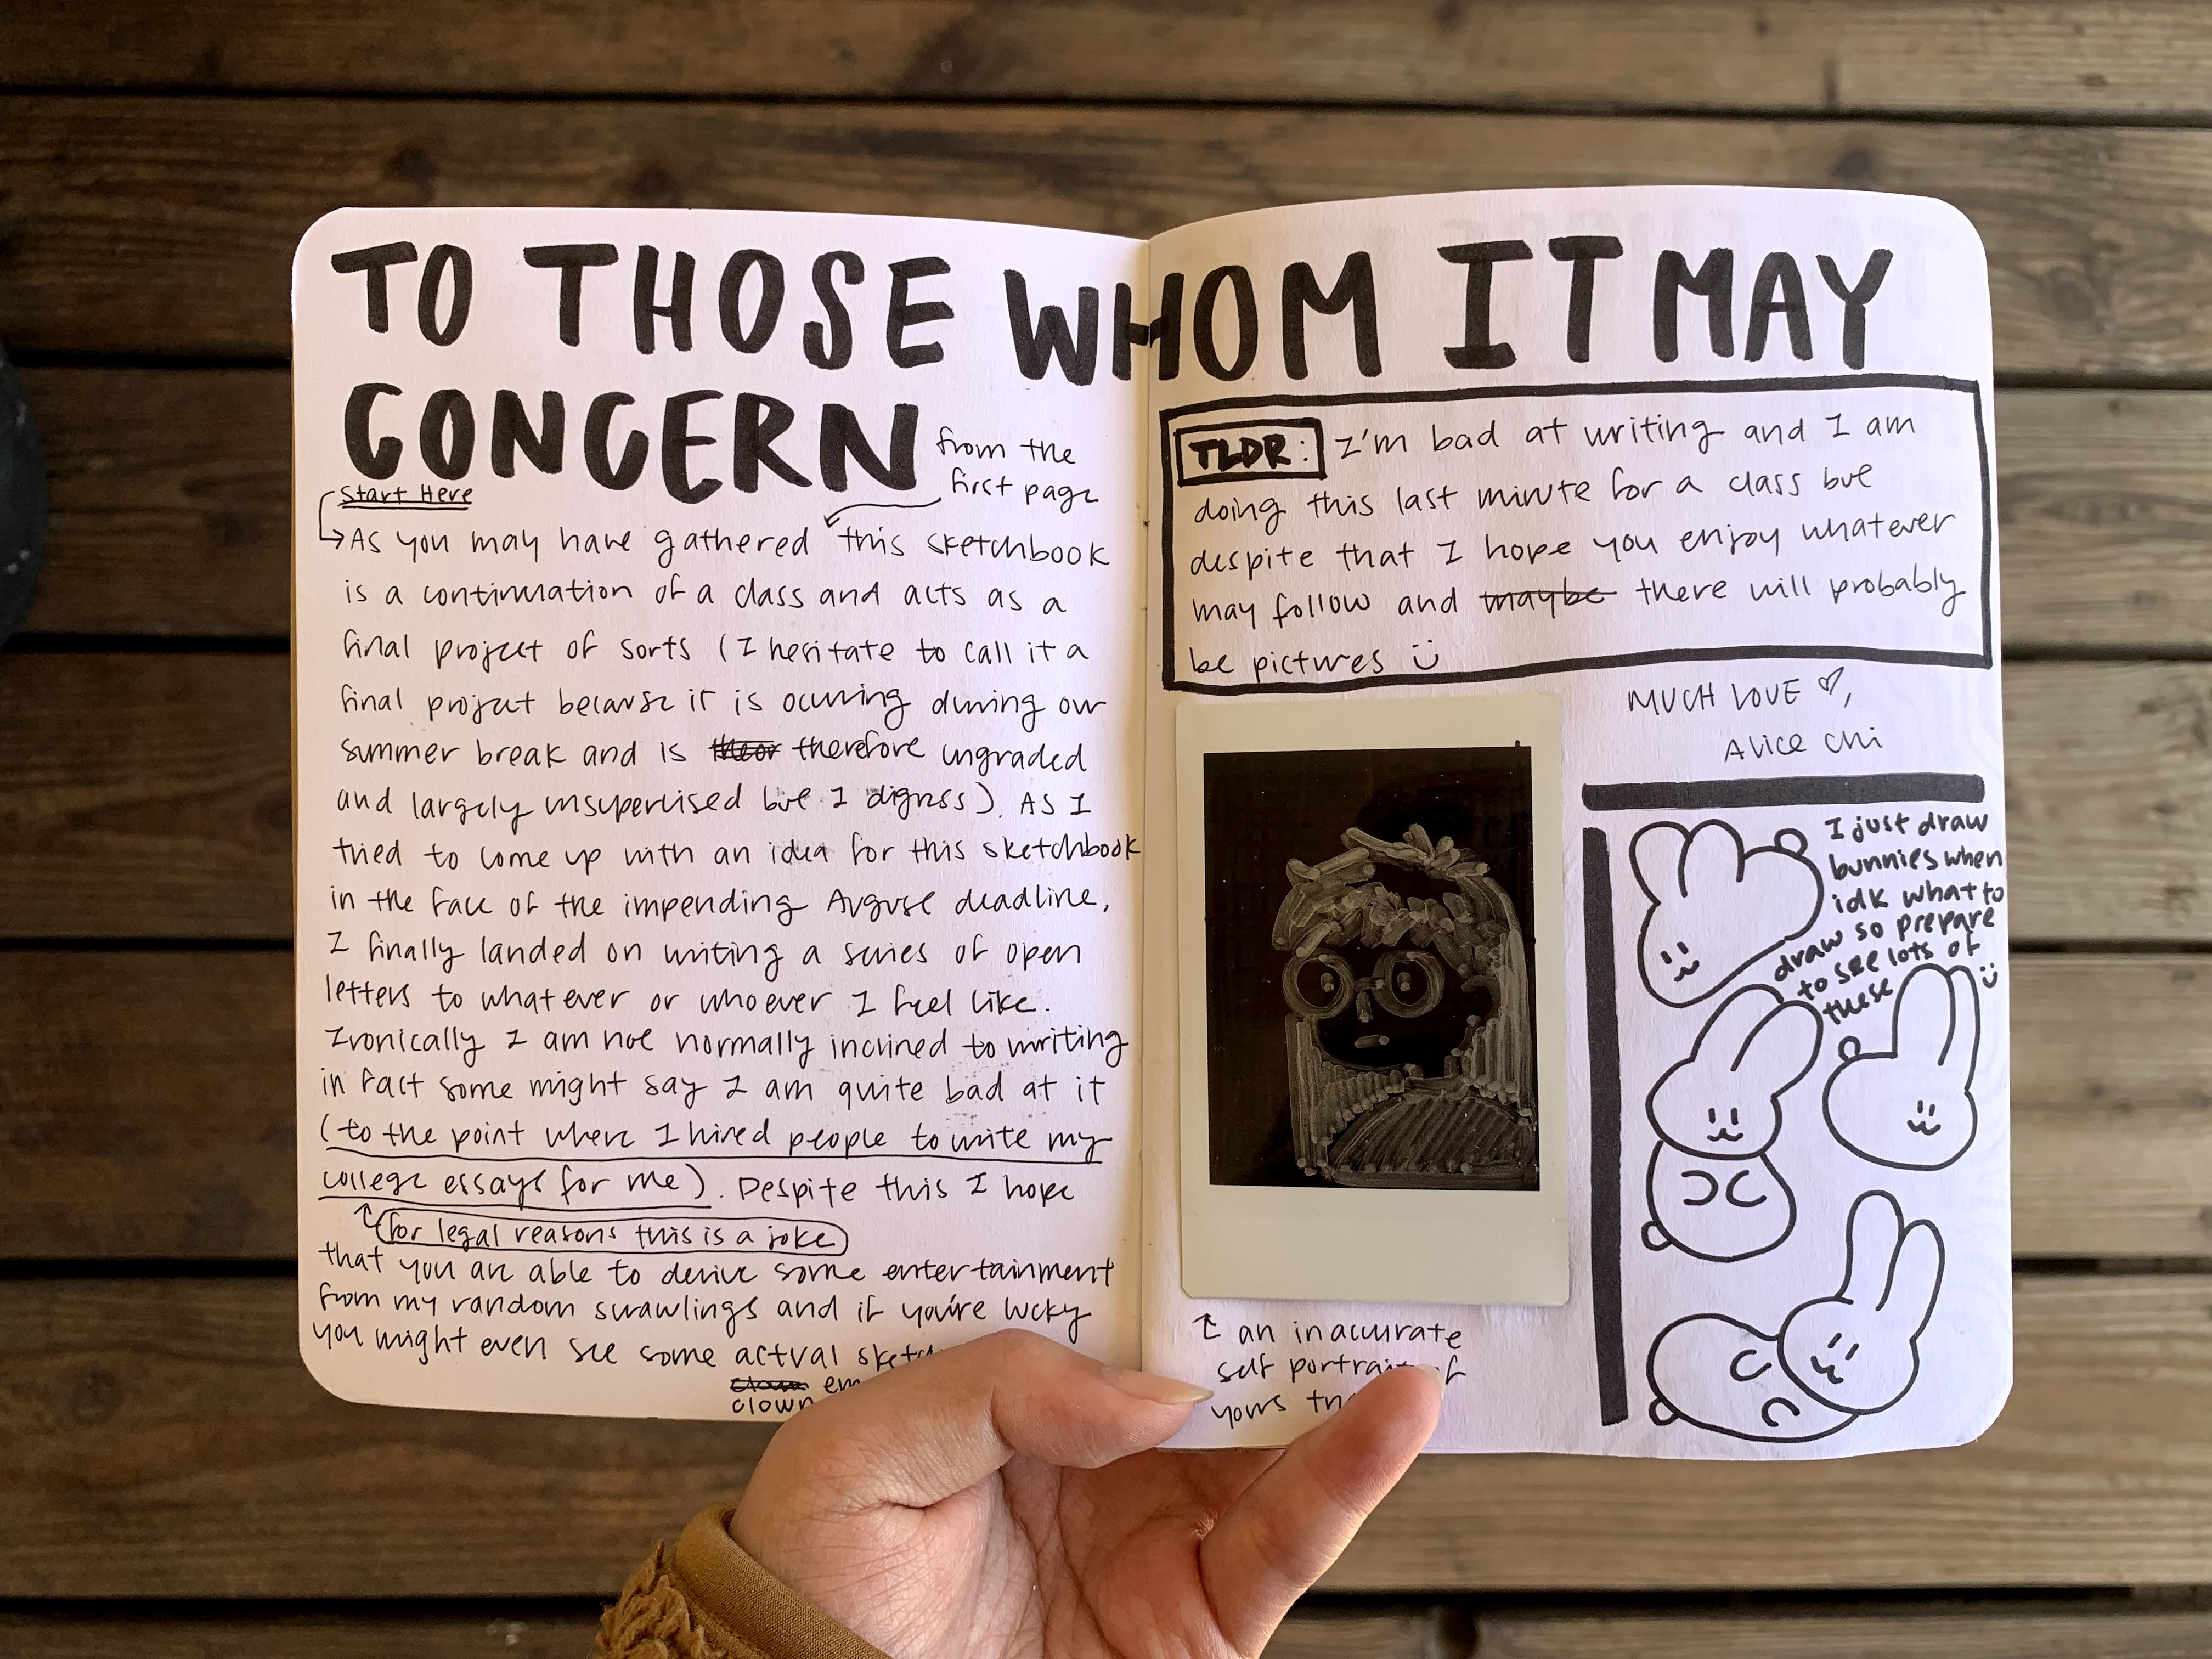 TO THOSE WHOM IT MAY
CONCERN
from the
first page
Start Here
As you may have gathered this sketchbook
is a continuation of a class and acts as a
final project of sorts (I hesitate to call it a
final project because it is occuring during our
summer break and is theor therefore ungraded
and largely unsupervised but I digress). As I
tried to come up with an idea for this sketchbook
in the face of the impending August deadline,
I finally landed on writing a series of open
letters to whatever or whoever I feel like.
Ironically I am not normally inclined to writing
in fact some might say I am quite bad at it
(to the point where I hired people to write my
college essays for me). Despite this I hope
for legal reasons this is a joke
that you are able to derive some entertainment
from my random scrawlings and if you're lucky
you might even see some actual
clown
TLDR: I'm bad at writing and I am
doing this last minute for a class but
despite that I hope you enjoy whatever
may follow and maybe there will probably
be pictures
MUCH LOVE ♡,
Alice Chi
I just draw
bunnies when
idk what to
draw so prepare
to see lots of
these
an inaccurate
self portrait of
yours